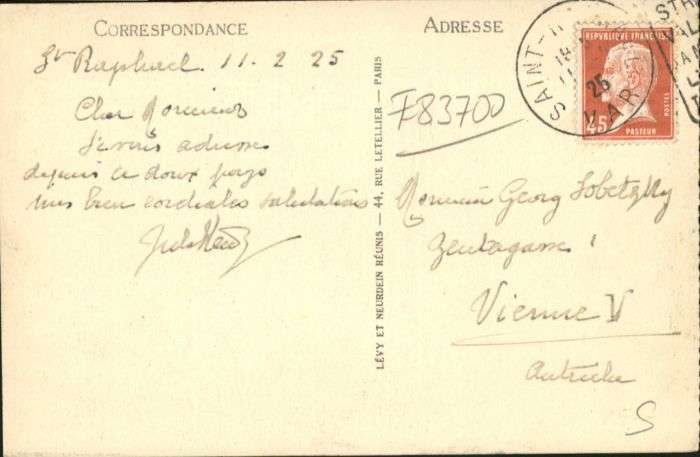 CORRESPONDANCE
St Raphael 11. 2 25
Cher Monsieur
Je vous adresse
depuis ce doux pays
mes bien cordiales salutations
LÉVY ET NEURDEIN RÉUNIS — 44, RUE LETELLIER — PARIS
ADRESSE
F83700
SAINT-
25
VAR
RÉPUBLIQUE FRANÇAISE
POSTES
45
PASTEUR
Monsieur Georg
Zentagasse 1
Vienne V
Autriche
S